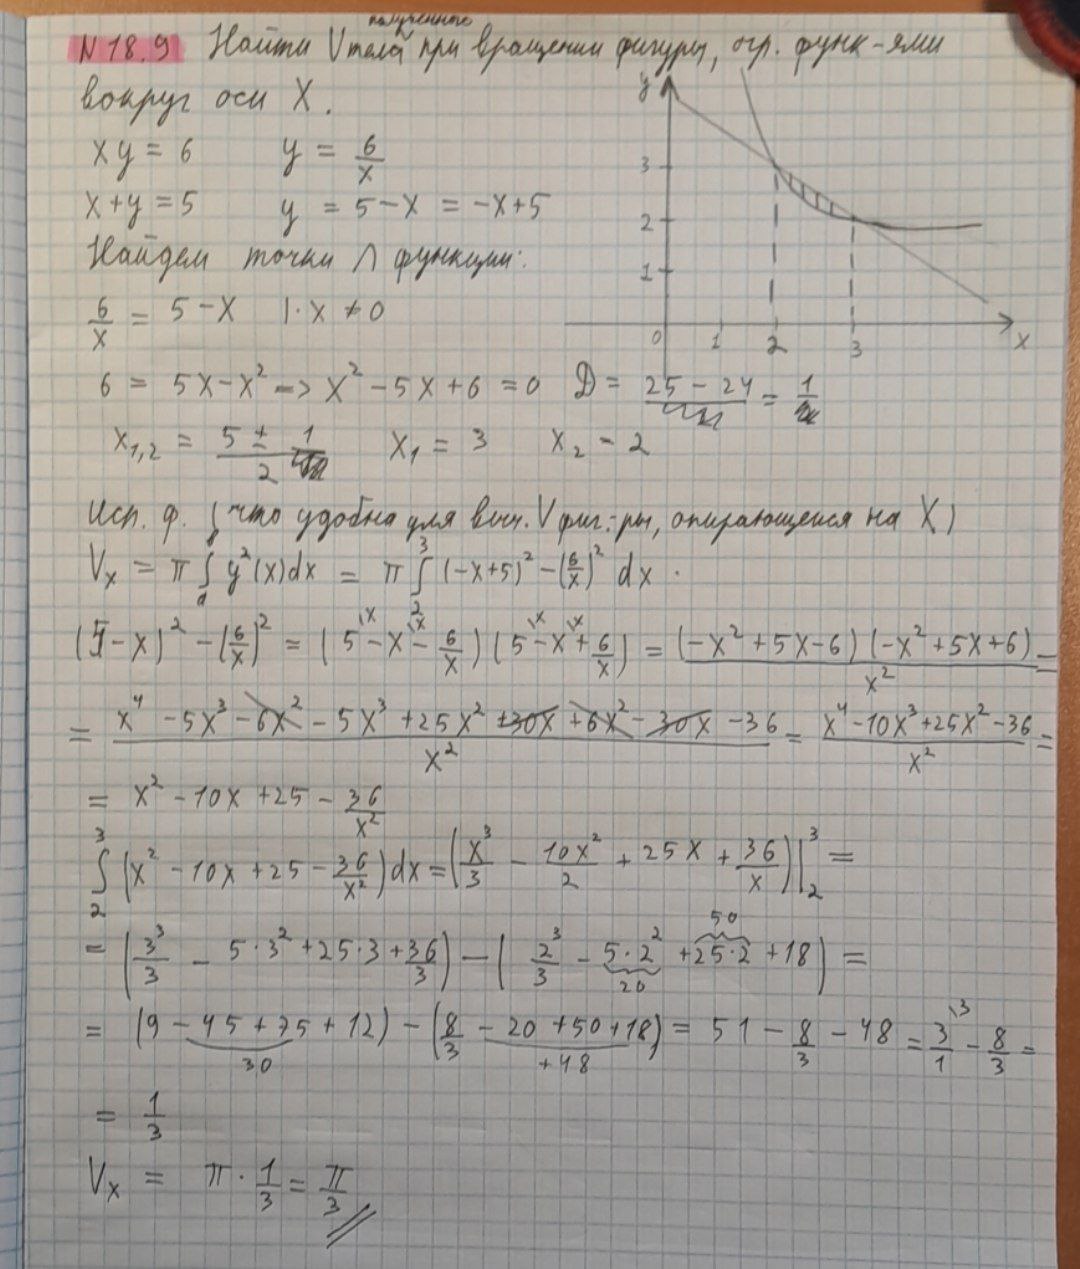 N 18.9 Найти V тела полученного при вращении фигуры, огр. функ-ями
вокруг оси X.
xy = 6 y = 6/x
x+y = 5 y = 5-x = -x+5
Найдем точки ∩ функции:
6/x = 5-x |·x ≠ 0
6 = 5x-x² => x² -5x+6 = 0 D = 25-24 = 1
x₁,₂ = (5 ± 1)/2 x₁ = 3 x₂ = 2
y
3
2
1
0 1 2 3 x
Исп. ф. (что удобна для выч. V фиг.-ры, опирающейся на X)
Vx = π ∫ y²(x)dx = π ∫₂³ (-x+5)² - (6/x)² dx.
(5-x)² - (6/x)² = (5-x-6/x)(5-x+6/x) = (-x²+5x-6)(-x²+5x+6)/x² =
= (x⁴ -5x³ -6x² -5x³ +25x² +30x +6x² -30x -36)/x² = (x⁴-10x³+25x²-36)/x² =
= x² -10x +25 - 36/x²
∫₂³ (x² -10x +25 - 36/x²)dx = (x³/3 - 10x²/2 + 25x + 36/x)|₂³ =
= (3³/3 - 5·3² +25·3 + 36/3) - (2³/3 - 5·2² + 25·2 + 18) =
20 50
= (9 -45 +75 +12) - (8/3 -20 +50 +18) = 51 - 8/3 - 48 = 3/1 - 8/3 =
30 +48
= 1/3
Vx = π · 1/3 = π/3